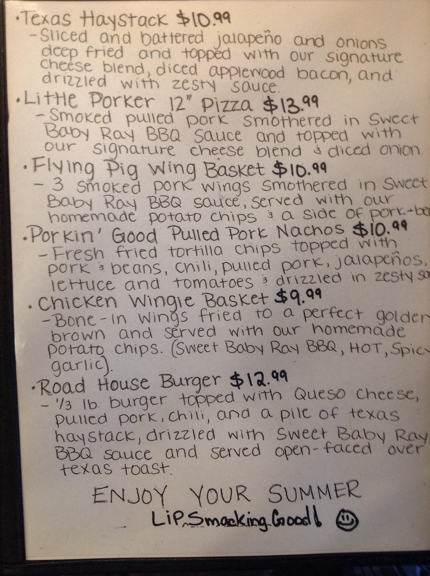 ·Texas Haystack $10.99
-Sliced and battered jalapeño and onions
deep fried and topped with our signature
cheese blend, diced applewood bacon, and
drizzled with zesty sauce.
·Little Porker 12" Pizza $13.99
-Smoked pulled pork smothered in Sweet
Baby Ray BBQ sauce and topped with
our signature cheese blend & diced onion
·Flying Pig Wing Basket $10.99
- 3 smoked pork wings smothered in Sweet
Baby Ray BBQ sauce, served with our
homemade potato chips & a side of pork-
·Porkin' Good Pulled Pork Nachos $10.99
-Fresh fried tortilla chips topped with
pork & beans, chili, pulled pork, jalapeños,
lettuce and tomatoes & drizzled in zesty
·Chicken Wingie Basket $9.99
-Bone-in wings fried to a perfect golden
brown and served with our homemade
potato chips. (Sweet Baby Ray BBQ, HOT, Spicy
garlic).
·Road House Burger $12.99
- 1/3 lb. burger topped with Queso cheese,
pulled pork, chili, and a pile of texas
haystack, drizzled with Sweet Baby Ray
BBQ sauce and served open-faced over
texas toast.
ENJOY YOUR SUMMER
Lip Smacking Good!